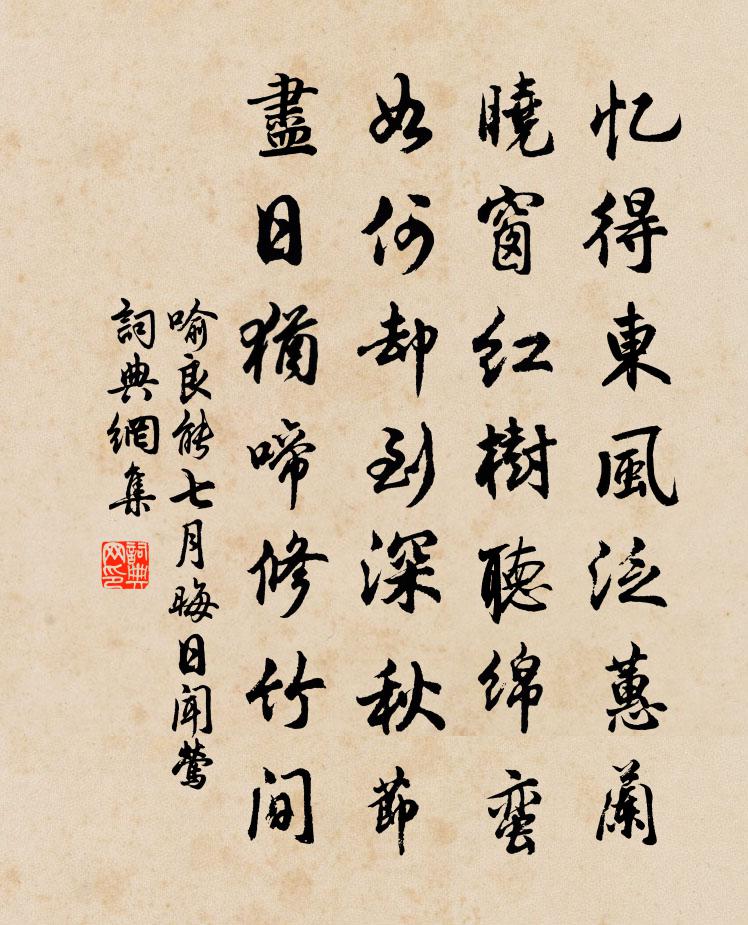 忆得東風泛蕙蘭
曉窗紅樹聽绵蛮
如何却到深秋節
盡日猶啼修竹间
喻良能七月晦日闻莺
詞典網集
詞典网印